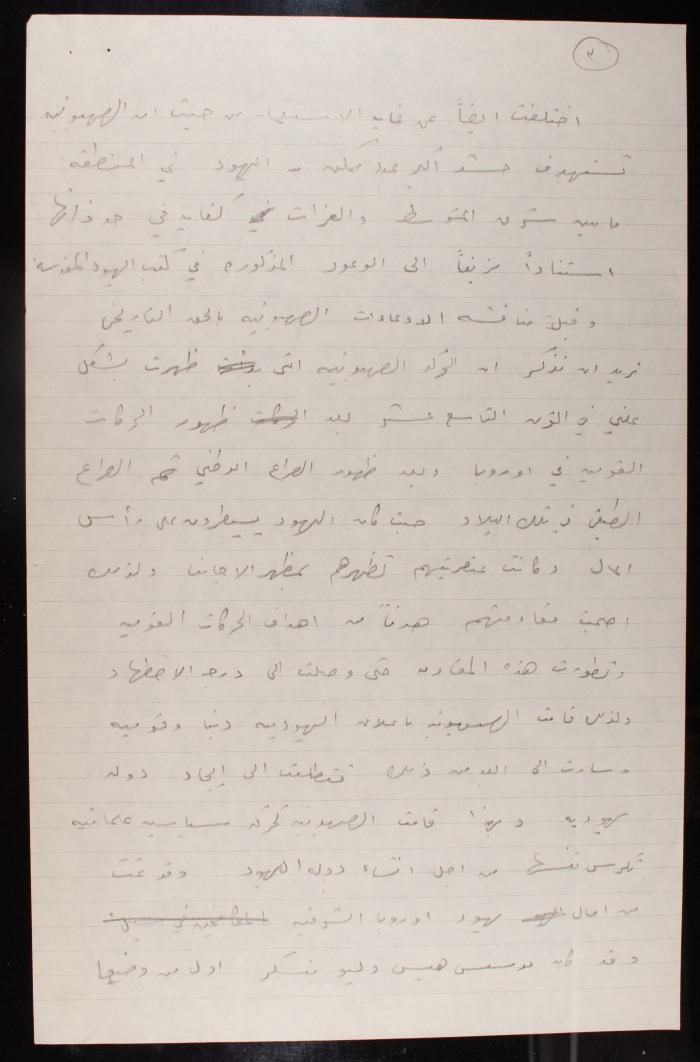 ٣
اختلفت ايضاً عن غايه الاستعمار من حيث ان الصهيونيه
تستهدف حشد أكبر عدد ممكن من اليهود في المنطقه
ما بين شرق المتوسط والفرات كغايه في حد ذاتها
استناداً مزيفاً الى الوعود المذكوره في كتب اليهود المقدسه
وقبل مناقشه الادعاءات الصهيونيه بالحق التاريخي
نريد ان نذكر ان الحركه الصهيونيه التي ظهرت بشكل
علني في القرن التاسع عشر بعد ظهور الحركات
القوميه في اوروبا وبعد ظهور الصراع الوطني ثم الصراع
الطبقي في تلك البلاد حيث كان اليهود يسيطرون على رأس
المال وكانت عنصريتهم تظهرهم بمظهر الاجانب ولذلك
اصبحت مقاومتهم هدفاً من اهداف الحركات القوميه
وتطورت هذه المقاومه حتى وصلت الى درجه الاضطهاد
ولذلك قامت الصهيونيه باعلان اليهوديه دينا وقوميه
وسارت الى ابعد من ذلك فتطلعت الى إيجاد دوله
يهوديه وبهذا قامت الصهيونيه كحركه سياسيه علمانيه
تكرس نفسها من اجل انشاء دوله لليهود وقد نمت
من امال يهود اوروبا الشرقيه
وقد كان موسس هيس وليو بنسكر اول من وضعا